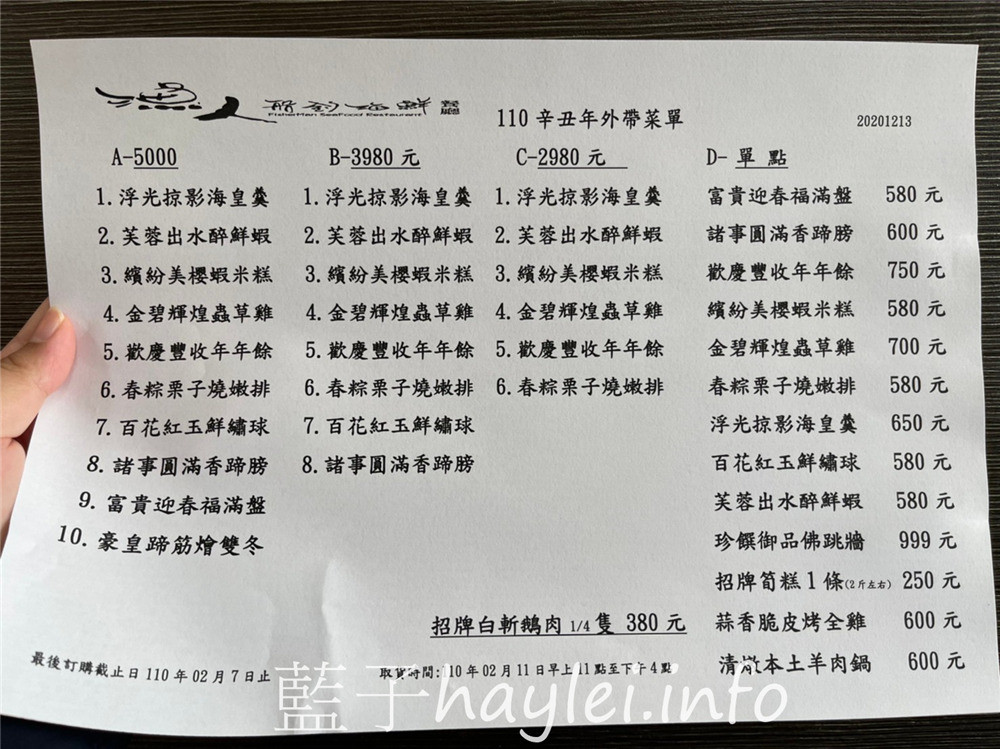 漁人船釣海鮮餐廳
FisherMen SeaFood Restaurent
110 辛丑年外帶菜單
20201213
A-5000
1. 浮光掠影海皇羹
2. 芙蓉出水醉鮮蝦
3. 繽紛美櫻蝦米糕
4. 金碧輝煌蟲草雞
5. 歡慶豐收年年餘
6. 春粽栗子燒嫩排
7. 百花紅玉鮮繡球
8. 諸事圓滿香蹄膀
9. 富貴迎春福滿盤
10. 豪皇蹄筋燴雙冬
B-3980 元
1. 浮光掠影海皇羹
2. 芙蓉出水醉鮮蝦
3. 繽紛美櫻蝦米糕
4. 金碧輝煌蟲草雞
5. 歡慶豐收年年餘
6. 春粽栗子燒嫩排
7. 百花紅玉鮮繡球
8. 諸事圓滿香蹄膀
C-2980 元
1. 浮光掠影海皇羹
2. 芙蓉出水醉鮮蝦
3. 繽紛美櫻蝦米糕
4. 金碧輝煌蟲草雞
5. 歡慶豐收年年餘
6. 春粽栗子燒嫩排
D- 單 點
富貴迎春福滿盤 580 元
諸事圓滿香蹄膀 600 元
歡慶豐收年年餘 750 元
繽紛美櫻蝦米糕 580 元
金碧輝煌蟲草雞 700 元
春粽栗子燒嫩排 580 元
浮光掠影海皇羹 650 元
百花紅玉鮮繡球 580 元
芙蓉出水醉鮮蝦 580 元
珍饌御品佛跳牆 999 元
招牌筍糕 1 條(2 斤左右) 250 元
蒜香脆皮烤全雞 600 元
清燉本土羊肉鍋 600 元
招牌白斬鵝肉 1/4 隻 380 元
最後訂購截止日 110 年 02 月 7 日止
取貨時間:110 年 02 月 11 日早上 11 點至下午 4 點
藍子haylei.info